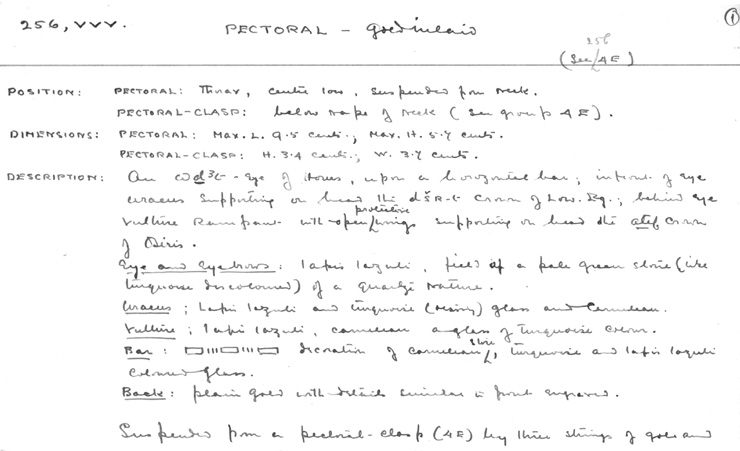 256, VVV.
PECTORAL - gold inlaid
①
256
(See 4E)
POSITION: PECTORAL: Thorax, centre low, suspended from neck.
PECTORAL-CLASP: below nape of neck (See group 4E).
DIMENSIONS: PECTORAL: Max. L. 9.5 cents.; Max. H. 5.7 cents.
PECTORAL-CLASP: H. 3.4 cents.; W. 3.7 cents.
DESCRIPTION: An eye of Horus, upon a horizontal bar; in front of eye
uraeus supporting on head the dšR-t crown of Low. Eg.; behind eye
vulture rampant with open protective wings supporting on head the atef crown
of Osiris.
Eye and Eyebrows: lapis lazuli, field of a pale green stone (like
turquoise discoloured) of a quartz nature.
Uraeus; Lapis lazuli and turquoise (resiny) glass and Carnelian.
Vulture; lapis lazuli, carnelian & glass of turquoise colour.
Bar: decoration of carnelian stone, turquoise and lapis lazuli
coloured glass.
Back: plain gold with details similar to front engraved.
Suspended from a pectoral-clasp (4E) by three strings of gold and